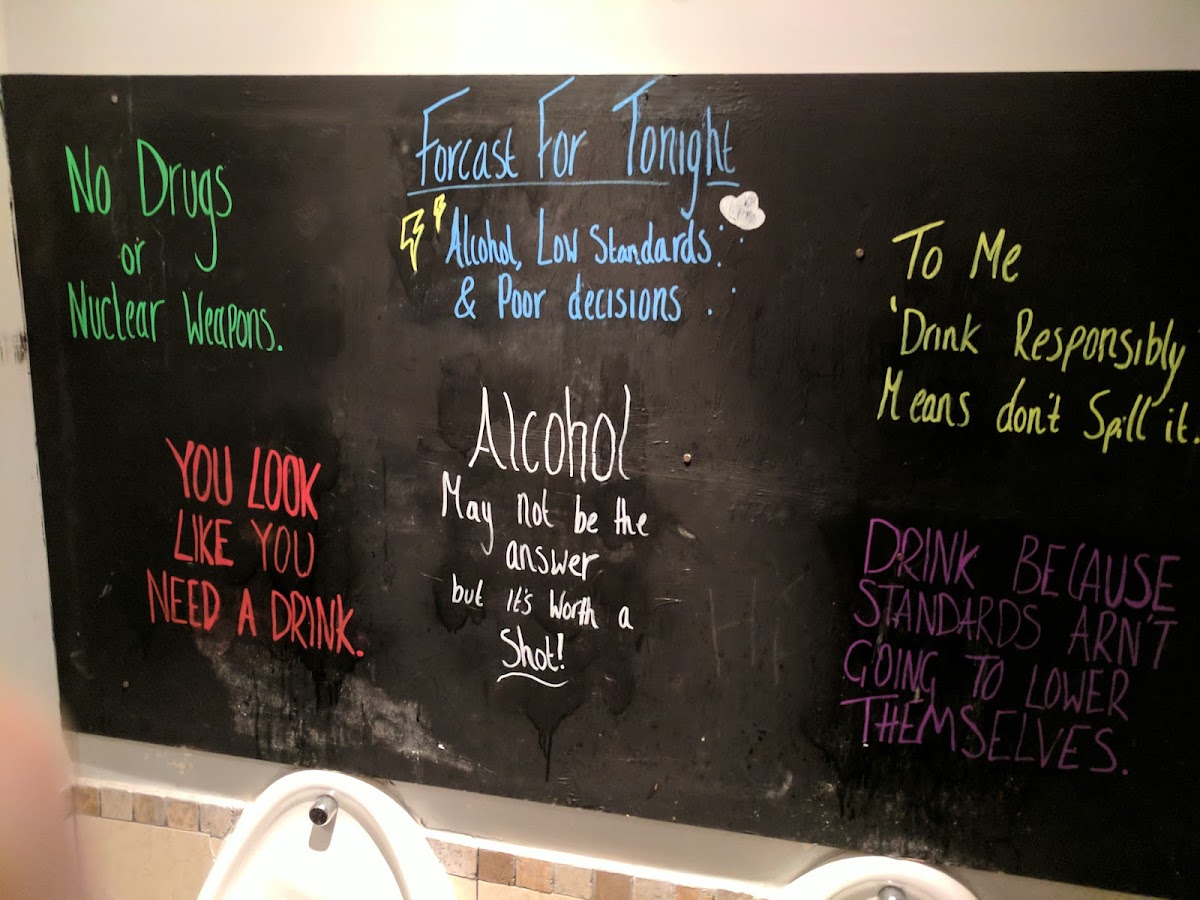 No Drugs
or
Nuclear Weapons.
Forcast For Tonight
Alcohol, Low Standards
& Poor decisions
To Me
'Drink Responsibly
Means don't Spill it.
YOU LOOK
LIKE YOU
NEED A DRINK.
Alcohol
May not be the
answer
but it's worth a
Shot!
DRINK BECAUSE
STANDARDS ARN'T
GOING TO LOWER
THEMSELVES.